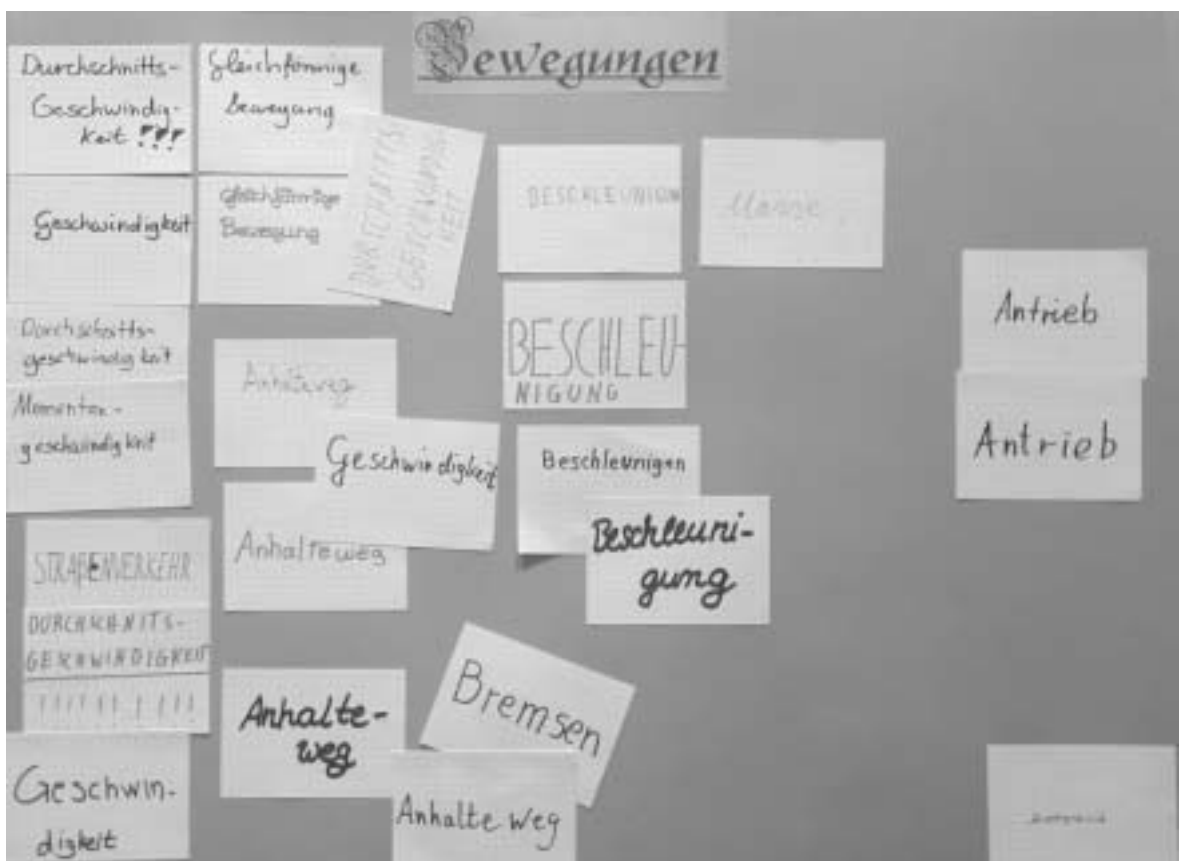 Bewegungen
Durchschnitts-
Geschwindig-
keit !!!
Gleichförmige
Bewegung
Geschwindigkeit
Gleichförmige
Bewegung
DURSCHNITTS
GESCHWINDIG
KEIT
BESCHLEUNIGUNG
Masse
Durchschnitts-
geschwindigkeit
Momentan-
geschwindigkeit
Anhalteweg
BESCHLEU-
NIGUNG
Antrieb
Antrieb
Geschwindigkeit
Beschleunigen
Anhalteweg
Beschleuni-
gung
STRAßENVERKEHR
DURCHSCHNITS-
GESCHWINDIGKEIT
!!!!!! ! !!!
Anhalte-
weg
Bremsen
Geschwin-
digkeit
Anhalte weg